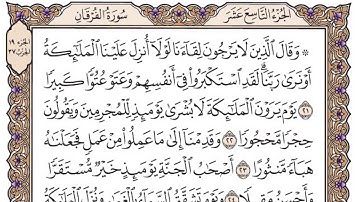 الجزء التاسع عشر
سورة الفرقان
وَقَالَ ٱلَّذِينَ لَا يَرْجُونَ لِقَآءَنَا لَوْلَآ أُنزِلَ عَلَيْنَا ٱلْمَلَٰٓئِكَةُ
أَوْ نَرَىٰ رَبَّنَا لَقَدِ ٱسْتَكْبَرُوا۟ فِىٓ أَنفُسِهِمْ وَعَتَوْ عُتُوًّا كَبِيرًا
٢١ يَوْمَ يَرَوْنَ ٱلْمَلَٰٓئِكَةَ لَا بُشْرَىٰ يَوْمَئِذٍ لِّلْمُجْرِمِينَ وَيَقُولُونَ
حِجْرًا مَّحْجُورًا ٢٢ وَقَدِمْنَآ إِلَىٰ مَا عَمِلُوا۟ مِنْ عَمَلٍ فَجَعَلْنَٰهُ
هَبَآءً مَّنثُورًا ٢٣ أَصْحَٰبُ ٱلْجَنَّةِ يَوْمَئِذٍ خَيْرٌ مُّسْتَقَرًّا
وَأَحْسَنُ مَقِيلًا ٢٤ وَيَوْمَ تَشَقَّقُ ٱلسَّمَآءُ بِٱلْغَمَٰمِ وَنُزِّلَ ٱلْمَلَٰٓئِكَةُ